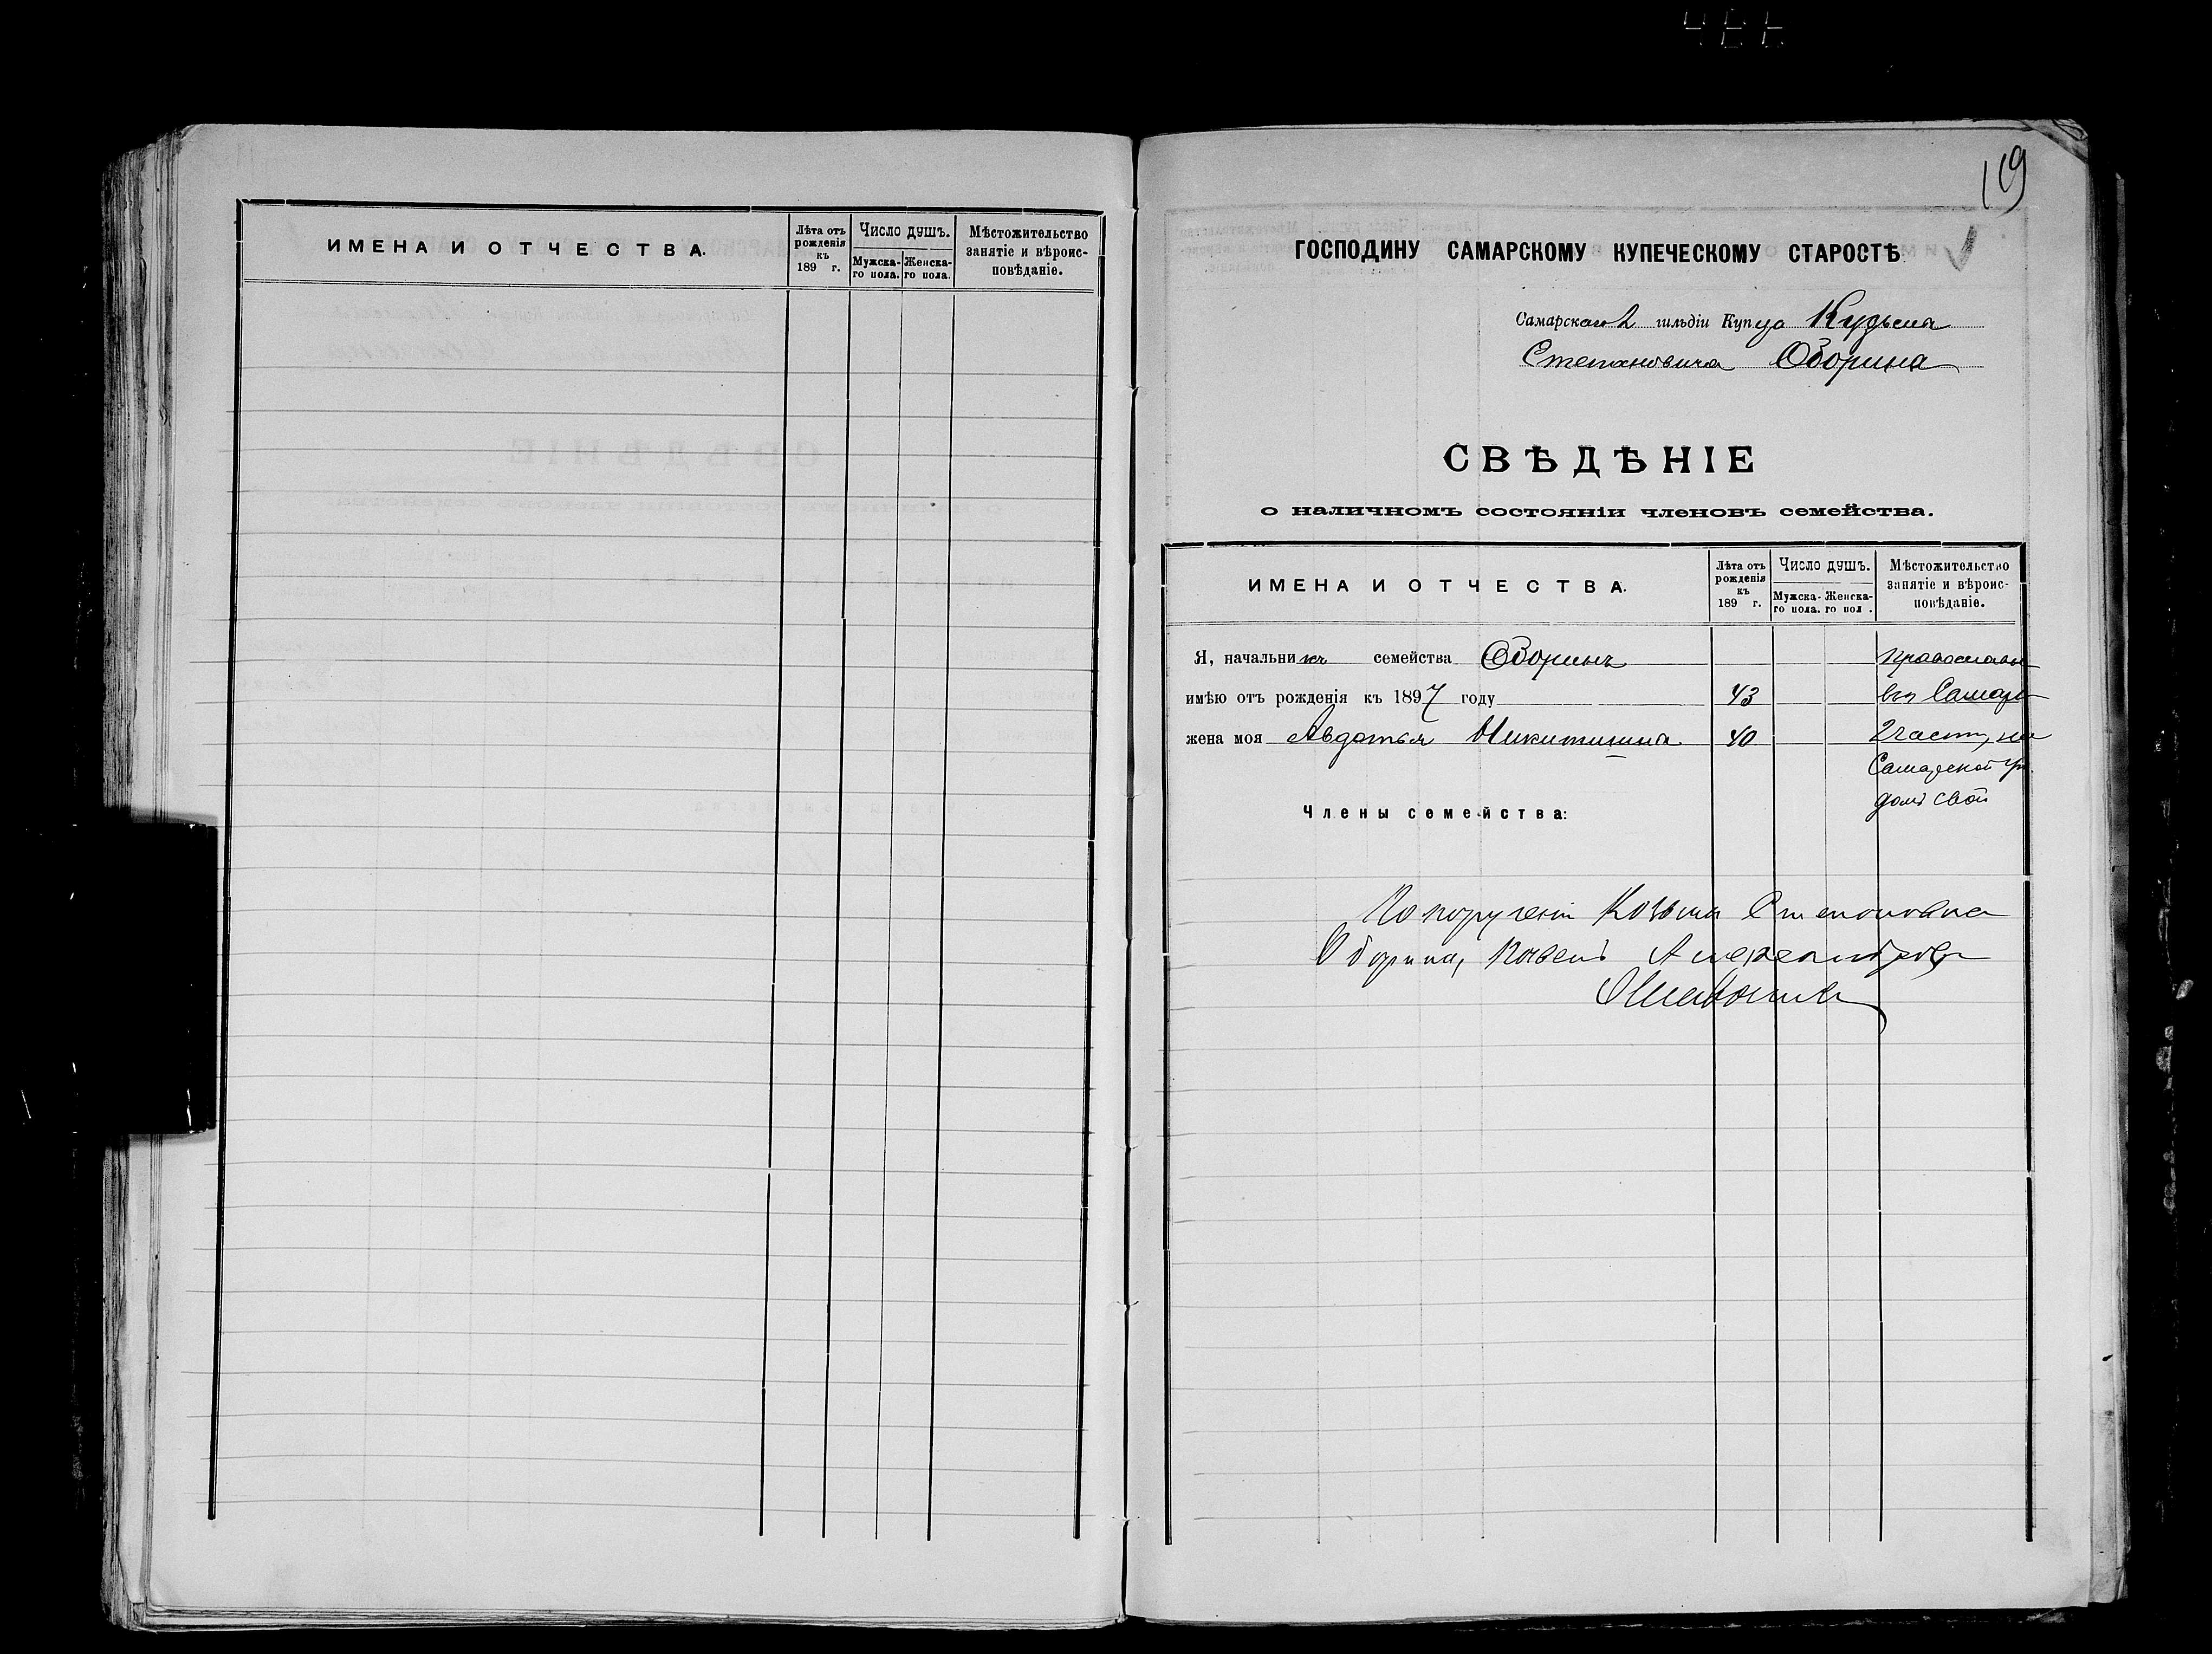 ИМЕНА И ОТЧЕСТВА.
Лѣта отъ рожденія къ 189 г.
Число душъ.
Мужска-го пола.
Женска-го пола.
Мѣстожительство занятіе и вѣроис-повѣданіе.
119
ГОСПОДИНУ САМАРСКОМУ КУПЕЧЕСКОМУ СТАРОСТѢ
Самарскаго 2 гильдіи Купца Кузьма
Степановича Оборина
СВѢДѢНІЕ
о наличномъ состояніи членовъ семейства.
ИМЕНА И ОТЧЕСТВА.
Лѣта отъ рожденія къ 189 г.
Число душъ.
Мужска-го пола.
Женска-го пол .
Мѣстожительство занятіе и вѣроис-повѣданіе.
Я, начальникъ семейства Оборинъ православн
имѣю отъ рожденія къ 1897 году 43 въ Самарѣ
жена моя Авдотья Никитишна 40 2 части, на
Самарской ул.
домъ свой
Члены семейства:
По порученію Козьмы Степановича
Оборина, Павелъ Александровъ